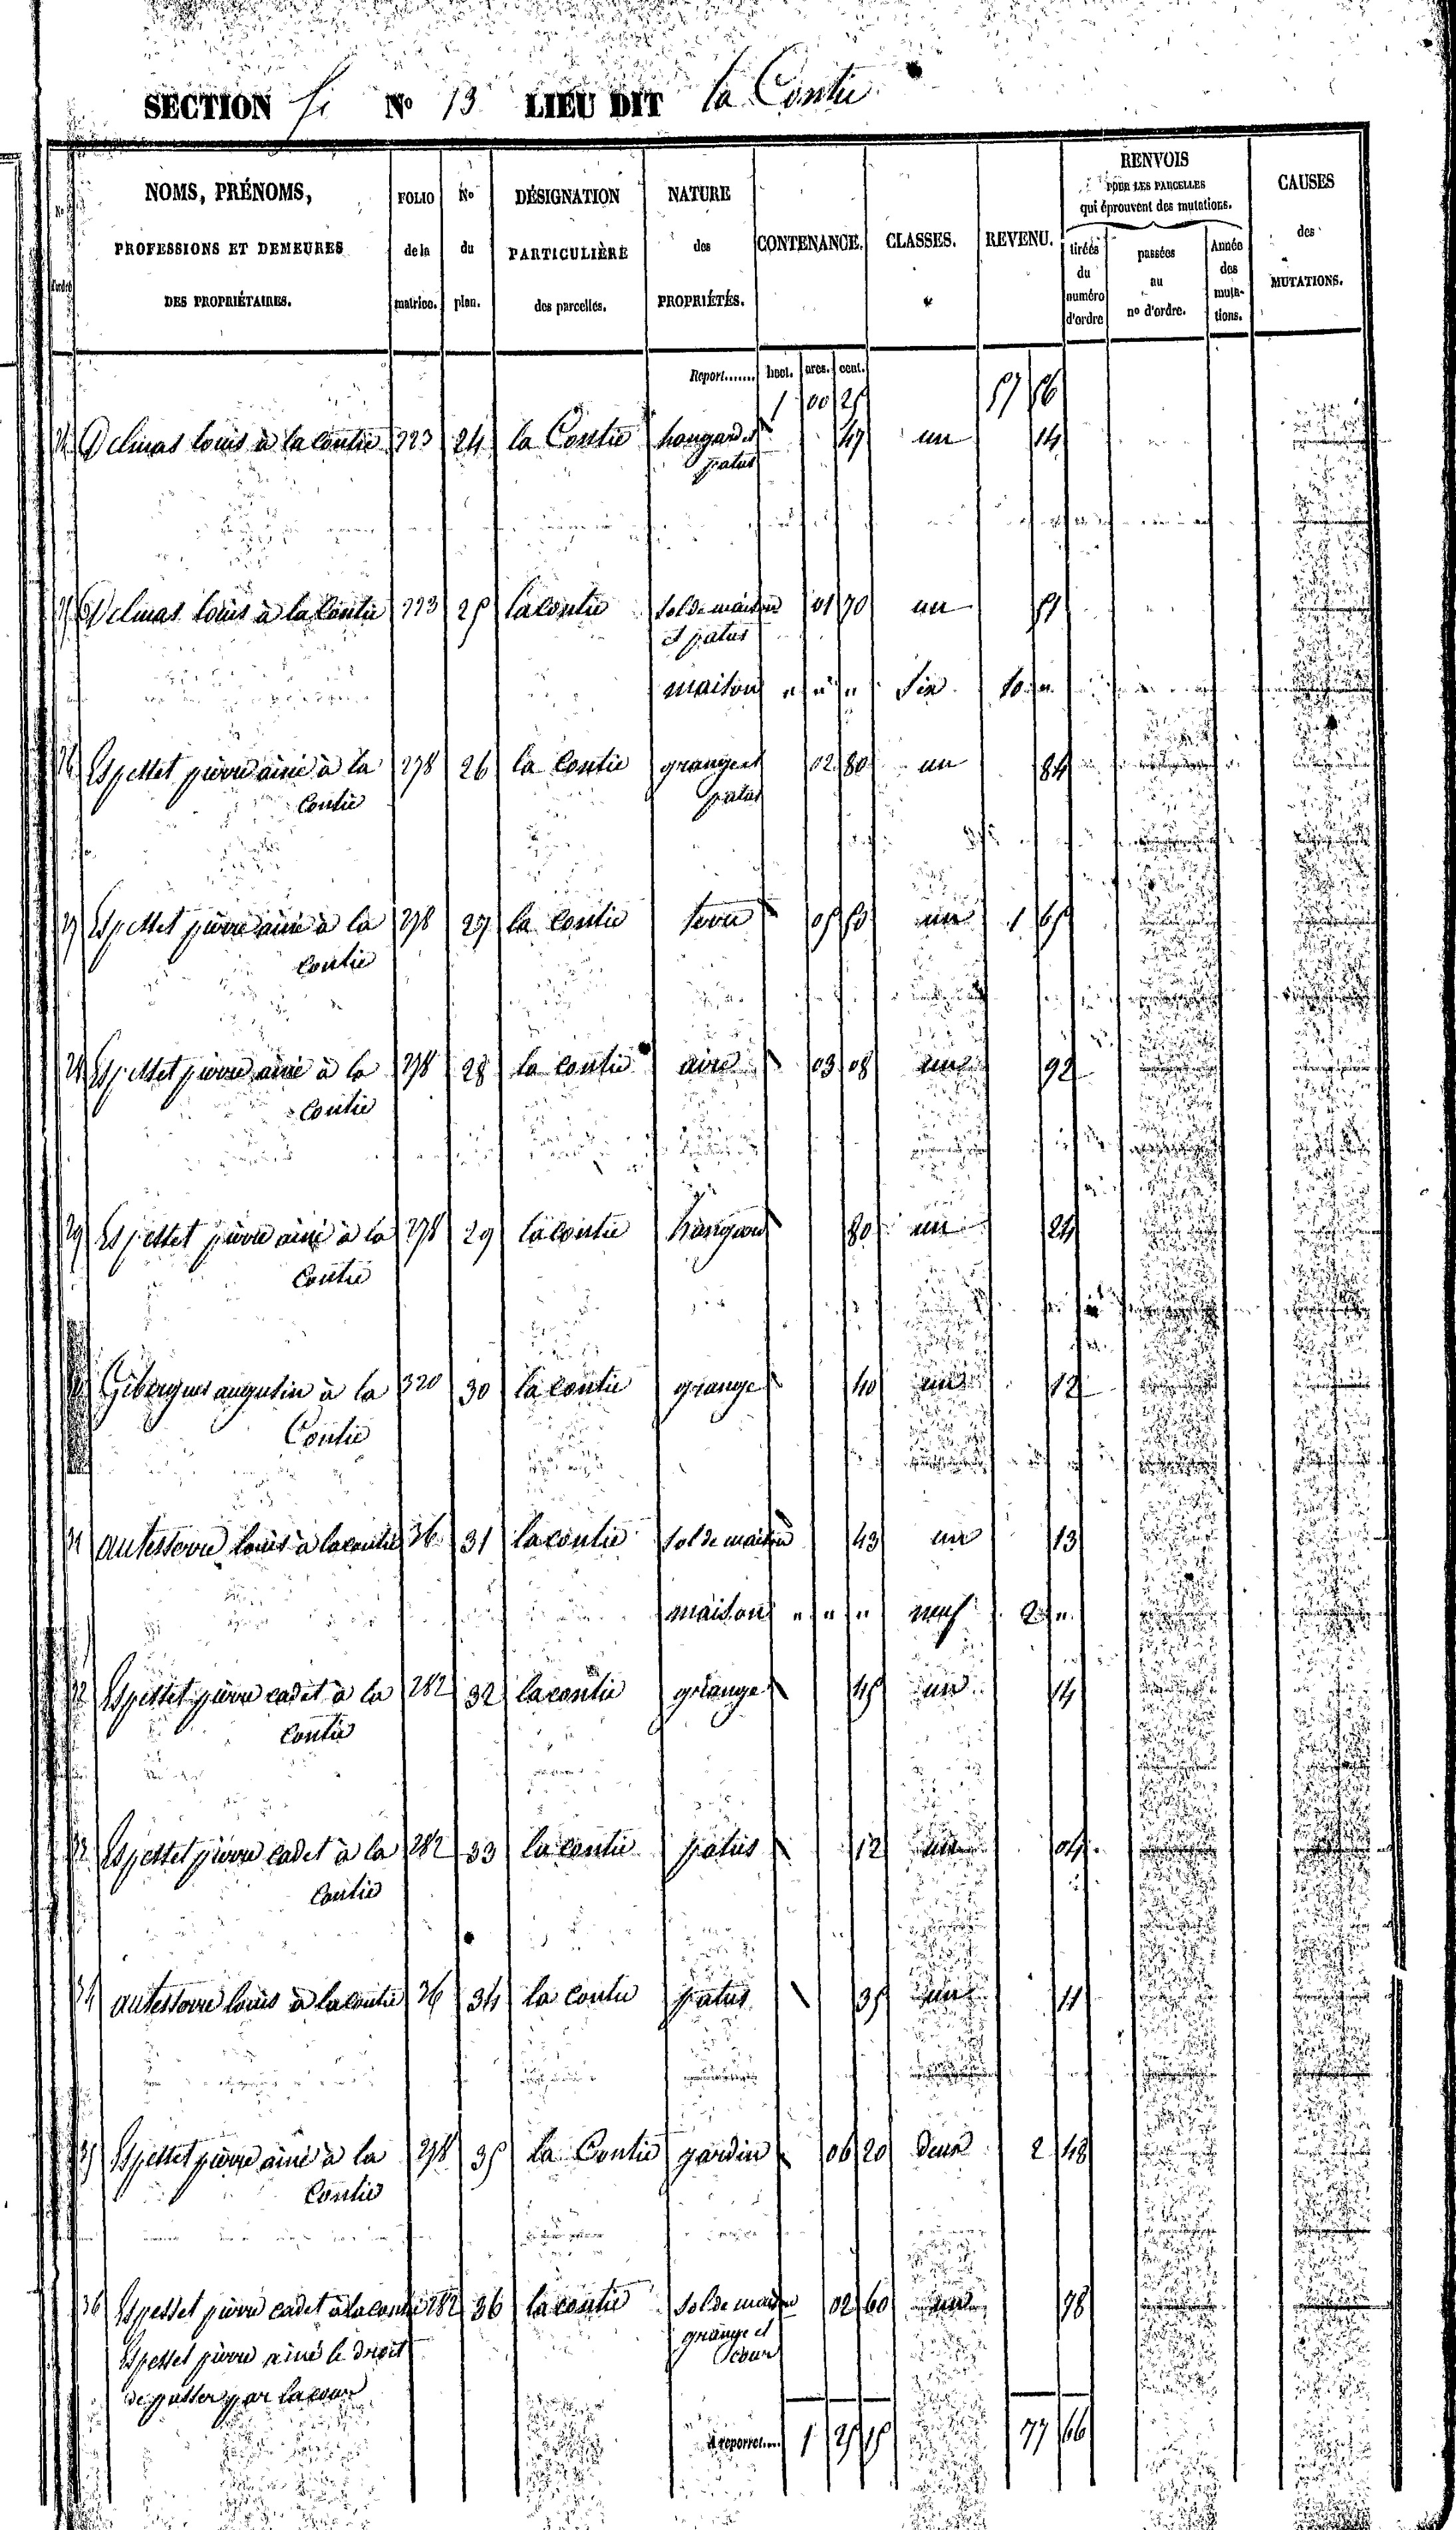 SECTION G No 13 LIEU DIT la Contie
No d'ordre NOMS, PRÉNOMS, PROFESSIONS ET DEMEURES DES PROPRIÉTAIRES. FOLIO de la matrice. No du plan. DÉSIGNATION PARTICULIÈRE des parcelles. NATURE des PROPRIÉTÉS. CONTENANCE. CLASSES. REVENU. RENVOIS POUR LES PARCELLES qui éprouvent des mutations. tirées du numéro d'ordre passées au no d'ordre. Année des mutations. CAUSES des MUTATIONS.
Report....... hect. ares. cent.
1 00 25 57 56
24 Delmas louis à la contie 223 24 la Contie hangard et 47 un 14
patus
25 Delmas louis à la Contie 223 25 la contie sol de maison 01 70 un 51
et patus
maison " " " six 10 "
26 Espettet pierre ainé à la 278 26 la Contie grange et 02 80 un 84
Contie patus
27 Espettet pierre ainé à la 278 27 la contie terre 05 50 un 1 65
contie
28 Espettet pierre ainé à la 278 28 la contie aire 03 08 un 92
Contie
29 Espettet pierre ainé à la 278 29 la contie hangard 80 un 24
Contie
Gibergues augustin à la 320 30 la contie grange 40 un 12
Contie
31 autesserre louis à la contie 36 31 la contie sol de maison 43 un 13
maison " " " neuf 2 "
32 Espettet pierre cadet à la 282 32 la contie grange 45 un 14
Contie
33 Espettet pierre cadet à la 282 33 la contie patus 12 un 04
Contie
34 autesserre louis à la contie 36 34 la contie patus 35 un 11
35 Espettet pierre ainé à la 278 35 la Contie jardin 06 20 deux 2 48
Contie
36 Espettet pierre cadet à la contie 282 36 la contie sol de maison 02 60 un 78
Espettet pierre ainé le droit grange et
de passer par la cour cour
A reporter.... 1 25 15 77 66